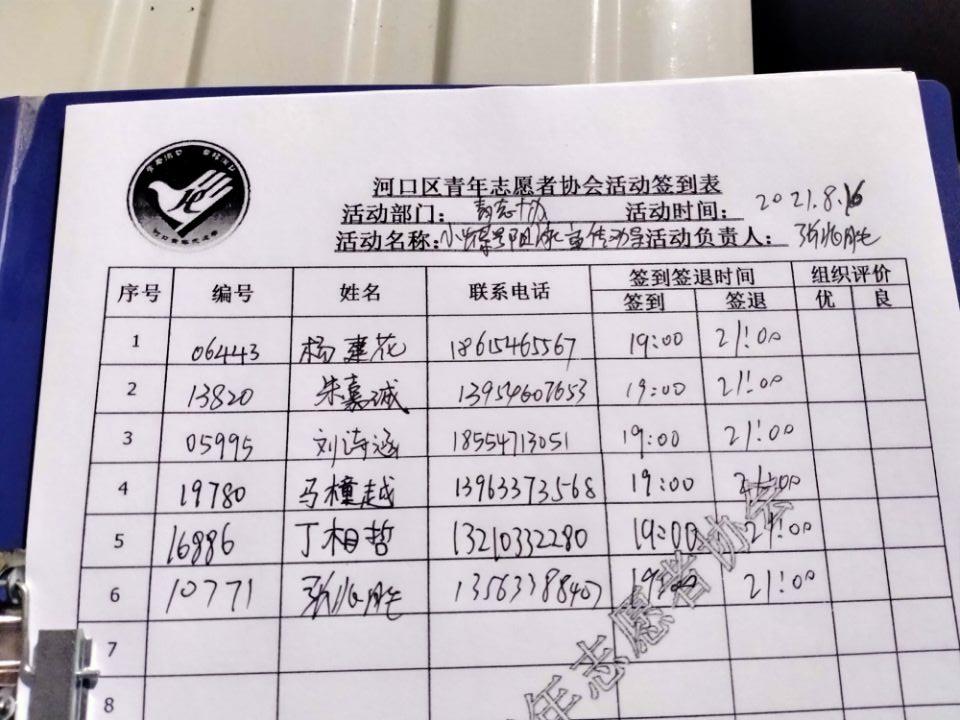 河口区青年志愿者协会活动签到表
活动部门: 青志协 活动时间: 2021.8.16
活动名称: 活动负责人: 张兆胜
序号 编号 姓名 联系电话 签到签退时间 组织评价
签到 签退 优 良
1 06443 杨建花 18615465567 19:00 21:00
2 13820 朱嘉诚 13954607653 19:00 21:00
3 05995 刘涵 18554713051 19:00 21:00
4 19780 马橦越 13963373568 19:00 21:00
5 16886 丁相哲 13210332280 19:00 21:00
6 10771 张兆胜 13563388407 19:00 21:00
7
8
年志愿者协会